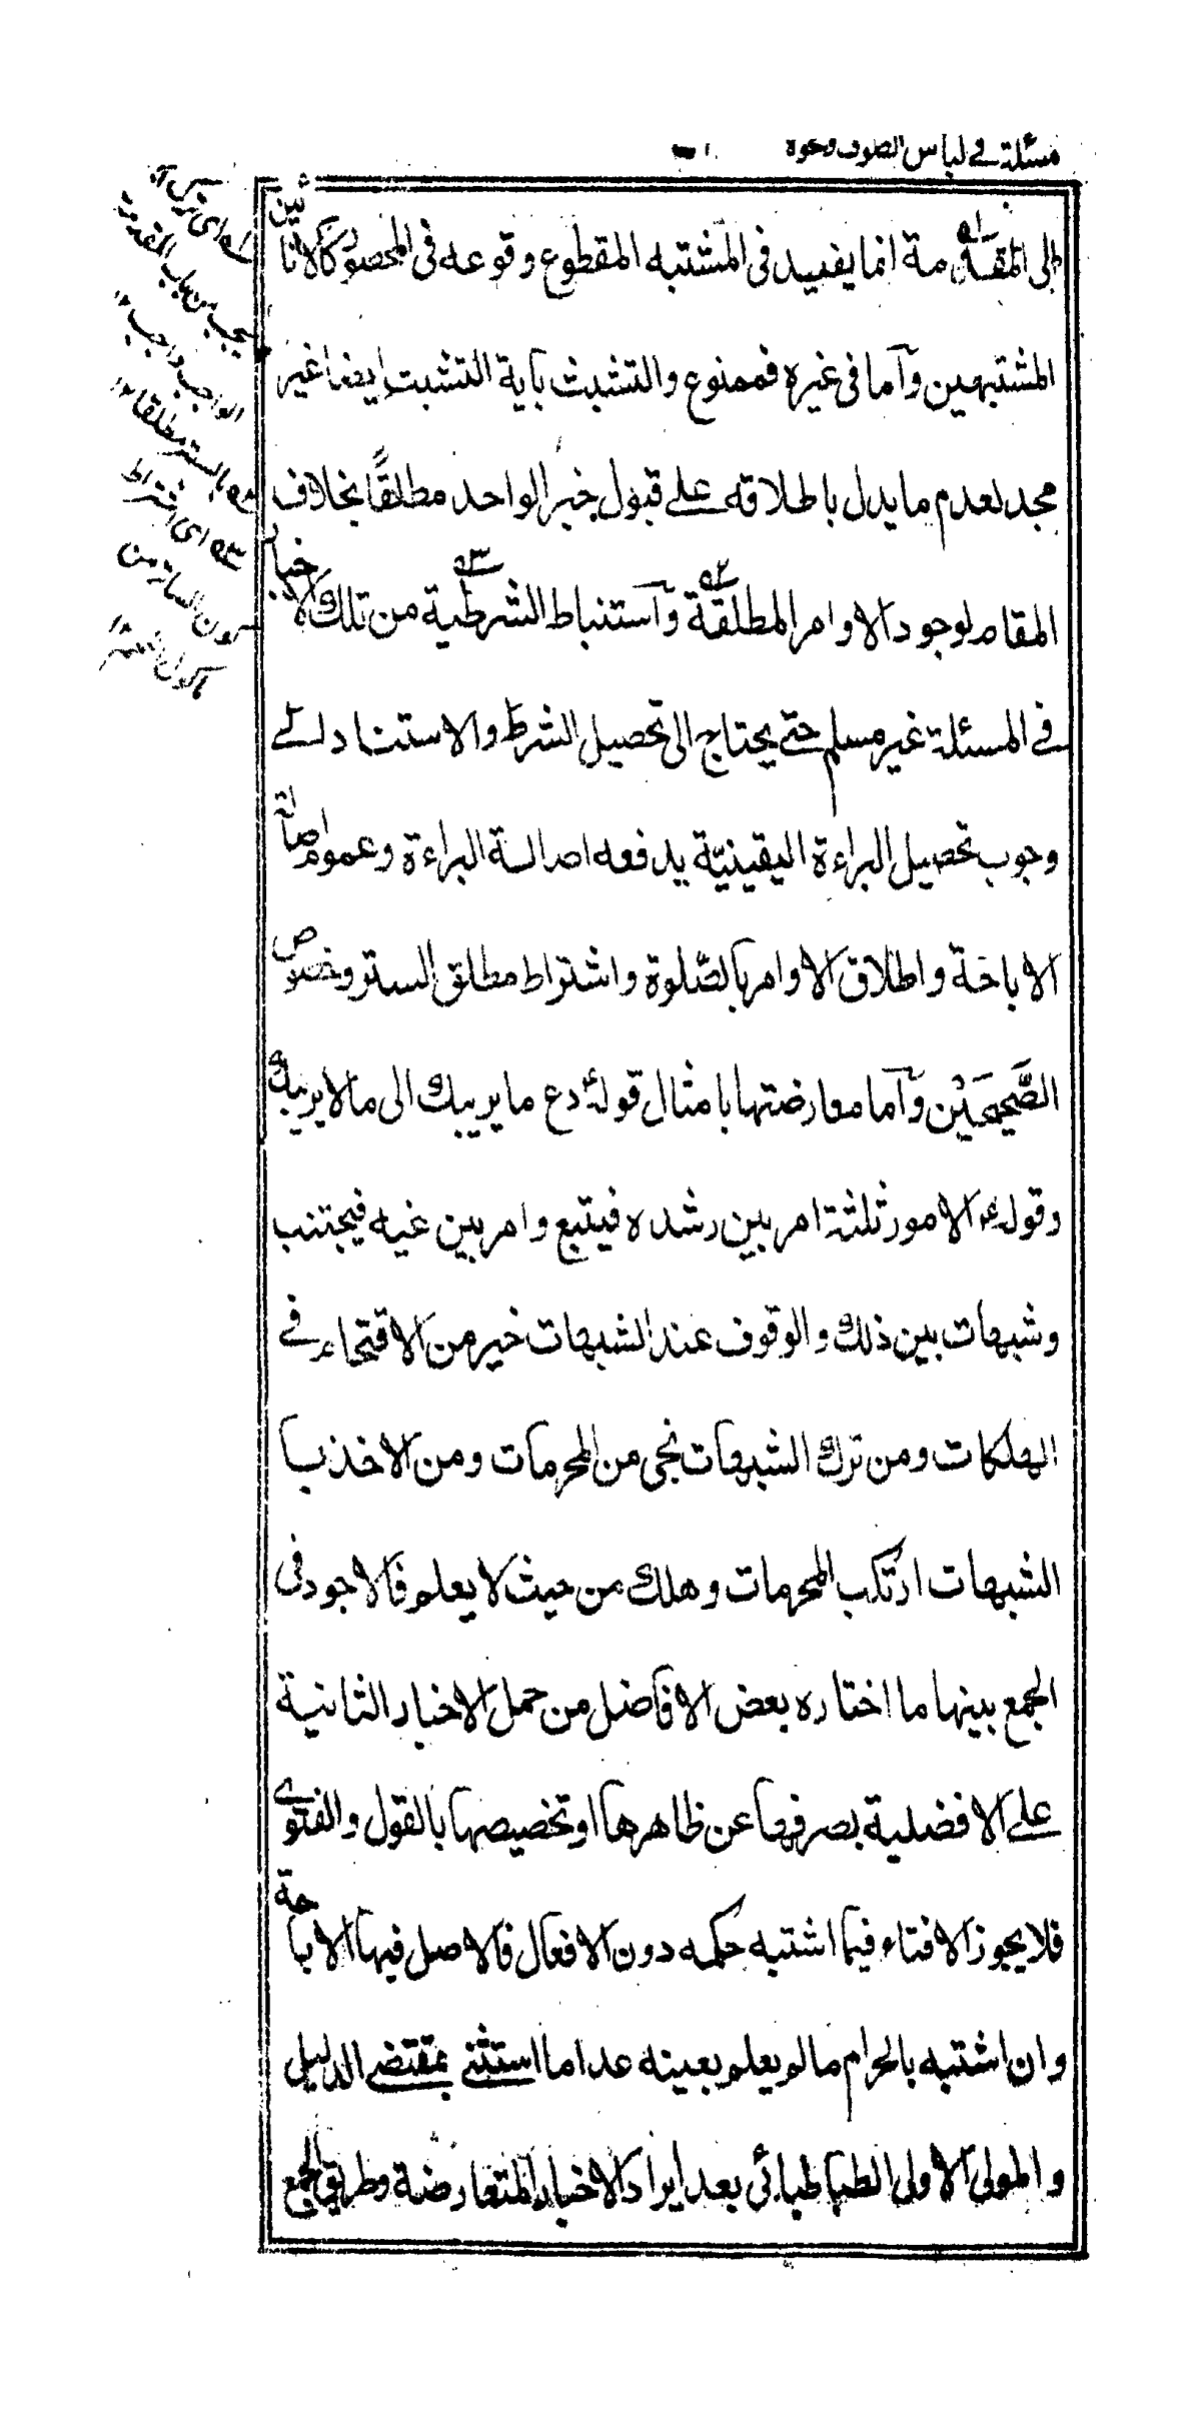 مسئلة في لباس الصوف ونحوه
الى المقدمة انما يفيد فى المشتبه المقطوع وقوعه فى المحصور كالانائين
المشتبهين وآما فى غيره فممنوع والتشبث بآية التثبت ايضا غير
مجد لعدم ما يدل باطلاقه على قبول خبر الواحد مطلقًا بخلاف
المقام لوجود الاوامر المطلقة وآستنباط الشرطية من تلك الاخبار
في المسئلة غير مسلم حتى يحتاج الى تحصيل الشرط والاستناد الى
وجوب تحصيل البراءة اليقينيّة يدفعه اصالة البراءة وعموم اصالة
الاباحة واطلاق الاوامر بالصّلوة واشتراط مطلق الستر وخصوص
الصَّحيحَيْن وآما معارضتها بامثال قولهؑ دع ما يريبك الى ما لا يريبك
وقولهؑ الامور ثلثة امر بين رشده فيتبع وامر بين غيه فيجتنب
وشبهات بين ذلك والوقوف عند الشبهات خير من الاقتحام في
الهلكات ومن ترك الشبهات نجى من المحرمات ومن الاخذ با
الشبهات ارتكب المحرمات وهلك من حيث لا يعلم فالاجود فى
الجمع بينها ما اختاره بعض الافاضل من حمل الاخبار الثانية
على الافضلية بصرفها عن ظاهرها او تخصيصها بالقول والفتوى
فلا يجوز الافتاء فيما اشتبه حكمه دون الافعال فالاصل فيها الاباحة
وان اشتبه بالحرام ما لم يعلم بعينه عدا ما استثنى بمقتضى الدليل
والمولى الاولى الطباطبائى بعد ايراد الاخبار المتعارضة وطريق الجمع
له اى ترك
يجب من باب المقدمة
الواجب واجب
٢ه بالستر مطلقا
٣ه اى اشتراط
كون الساتر من